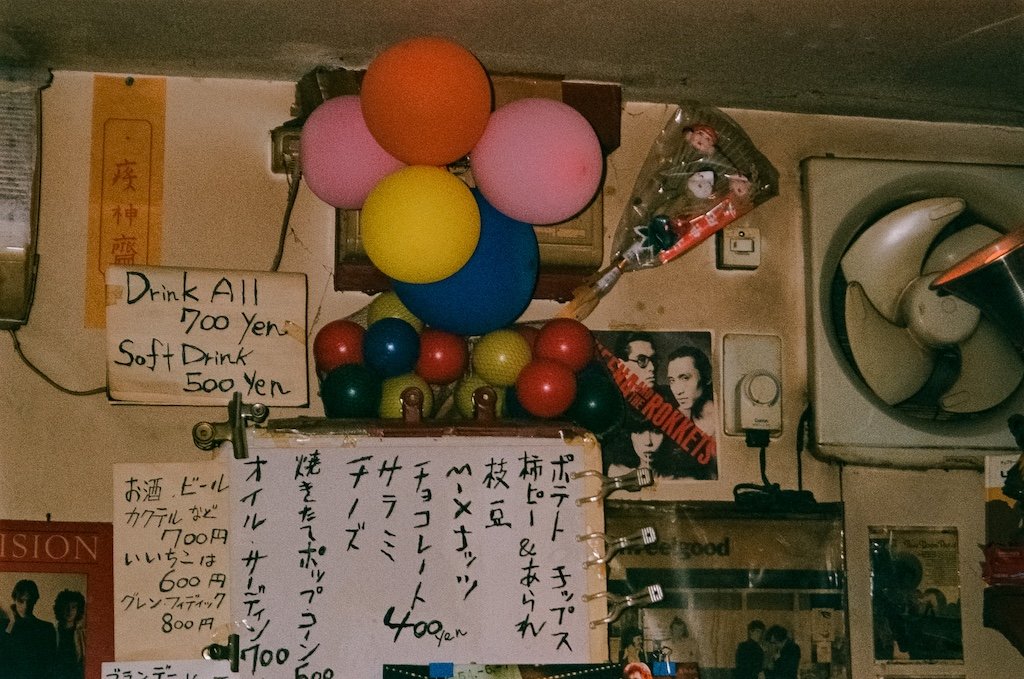 Drink All
700 Yen
Soft Drink
500 Yen
お酒.ビール
カクテルなど
700円
いいちこは
600円
グレンフィディック
800円
ブランデー
ポテト チップス
柿ピー&あられ
枝豆
ミックスナッツ
チョコレート
サラミ
チーズ
400yen
焼きたてポップコーン
500
オイル・サーディン700
ROKKETS
ISION
feelgood